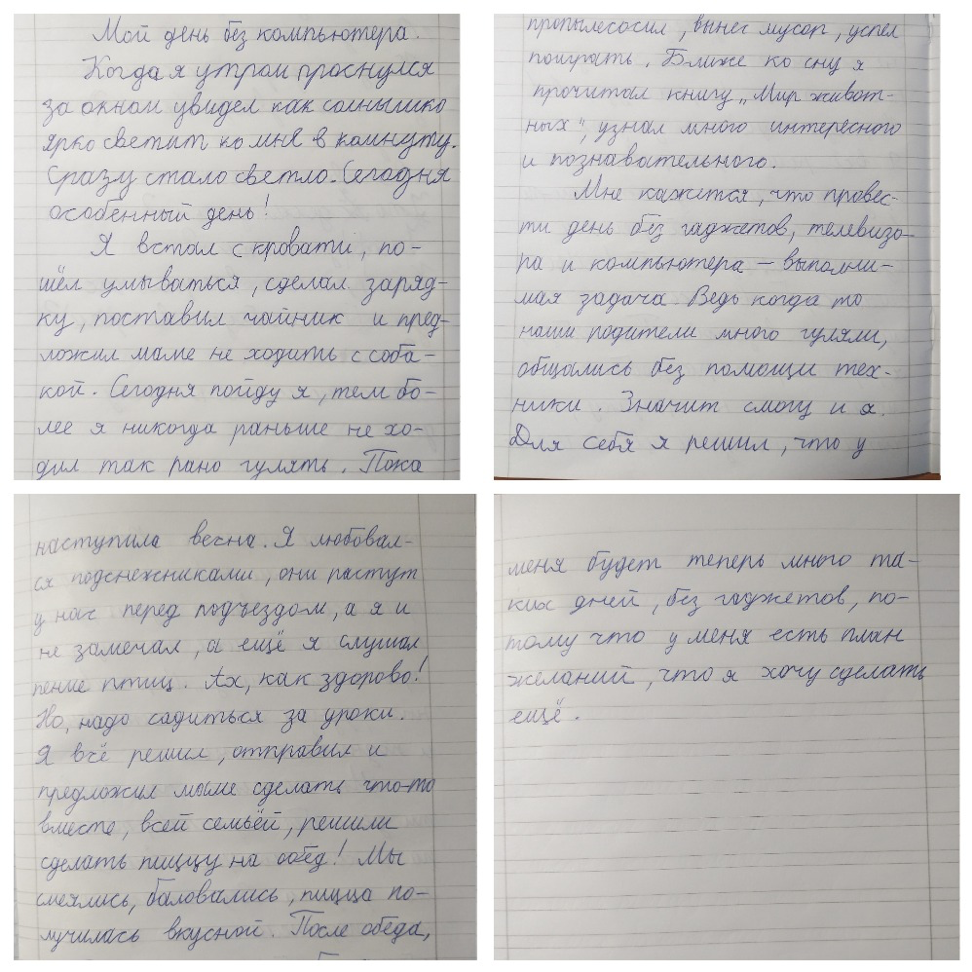 Мой день без компьютера.
Когда я утром проснулся
за окном увидел как солнышко
ярко светит ко мне в комнуту.
Сразу стало светло. Сегодня
особенный день!
Я встал с кровати, по-
шёл умываться, сделал заряд-
ку, поставил чайник и пред-
ложил маме не ходить с соба-
кой. Сегодня пойду я, тем бо-
лее я никогда раньше не хо-
дил так рано гулять. Пока
наступила весна. Я любовал-
ся подснежниками, они растут
у нас перед подъездом, а я и
не замечал, а ещё я слушал
пение птиц. Ах, как здорово!
Но, надо садиться за уроки.
Я всё решил, отправил и
предложил маме сделать что-то
вместе, всей семьёй, решили
сделать пиццу на обед! Мы
смеялись, баловались, пицца по-
лучилась вкусной. После обеда,
пропылесосил, вынес мусор, успел
поиграть. Ближе ко сну я
прочитал книгу „Мир живот-
ных", узнал много интересного
и познавательного.
Мне кажится, что провес-
ти день без гаджетов, телевизо-
ра и компьютера – выполни-
мая задача. Ведь когда то
наши родители много гуляли,
общались без помощи тех-
ники. Значит смогу и я.
Для себя я решил, что у
меня будет теперь много та-
ких дней, без гаджетов, по-
тому что у меня есть план
желаний, что я хочу сделать
ещё.